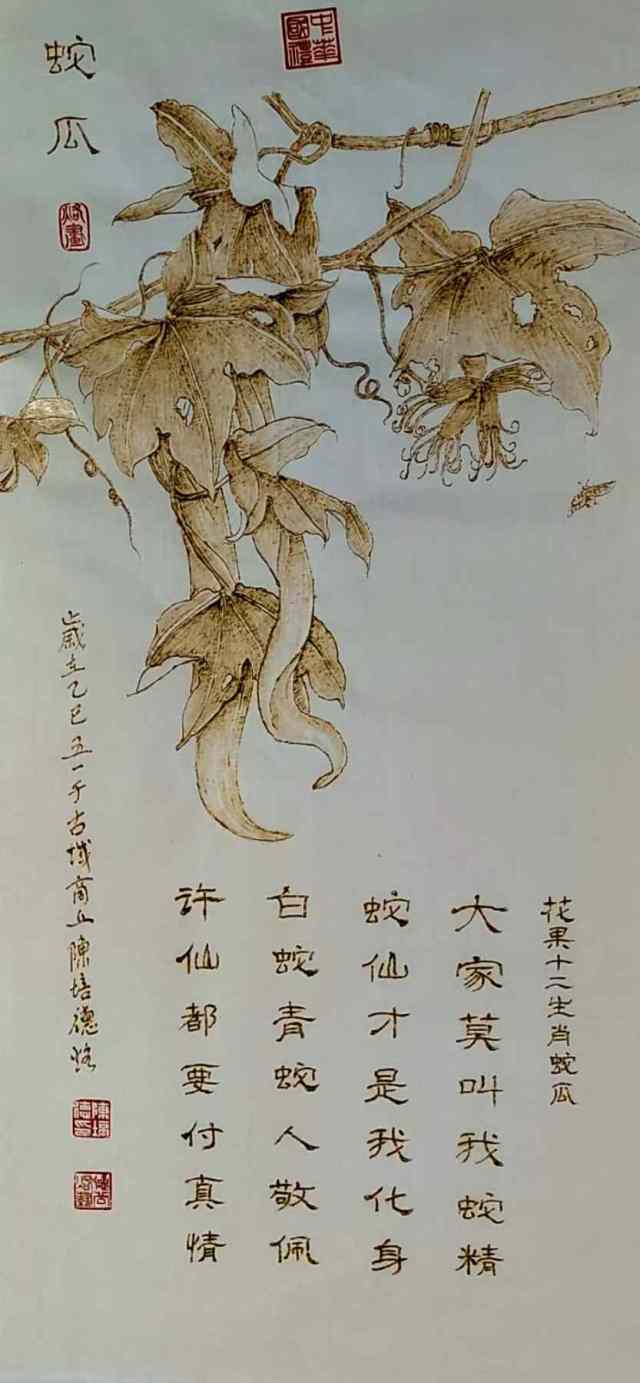 蛇瓜
烙畫
中華國禮
花果十二生肖蛇瓜
大家莫叫我蛇精
蛇仙才是我化身
白蛇青蛇人敬佩
許仙都要付真情
歲在乙巳五一于古城商丘陳培德烙